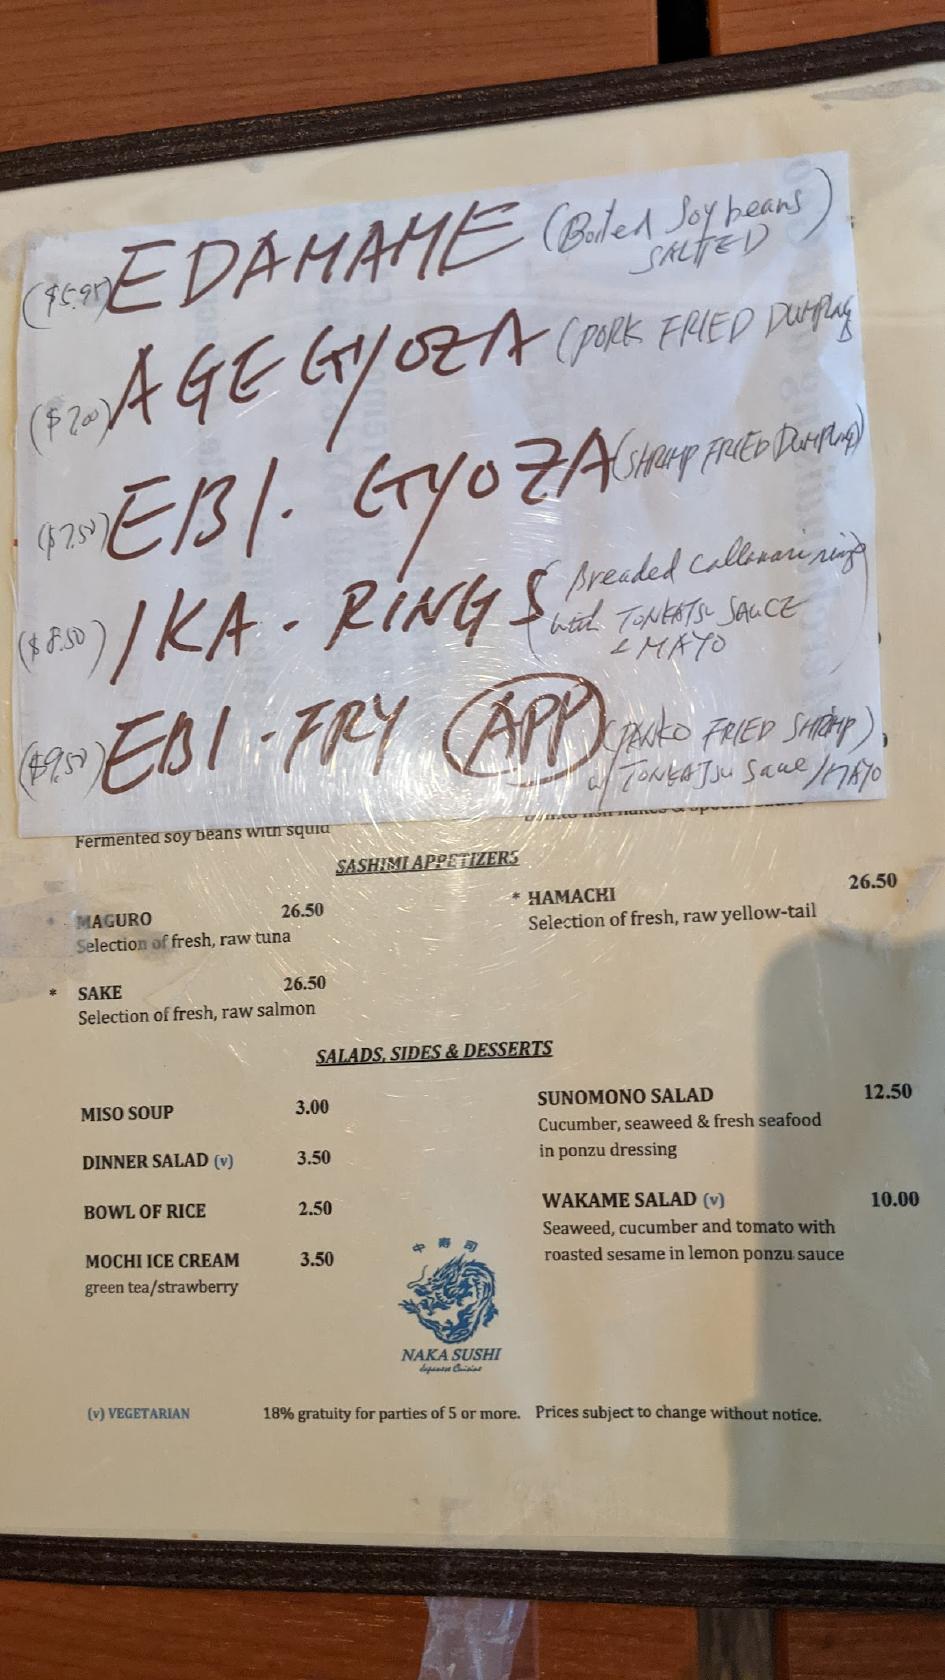 EDAMAME (Boiled Soybeans)
SALTED
($5.95)
AGE GYOZA (PORK FRIED DUMPLING
($7.00)
EBI. GYOZA (SHRIMP FRIED DUMPLING)
($7.50)
IKA - RINGS (Breaded Callamari rings
with TONKATSU SAUCE
& MAYO)
($8.50)
EBI - FRY APP (PANKO FRIED SHRIMP)
w/ TONKATSU Sauce / MAYO
($9.50)
Fermented soy beans with squid
SASHIMI APPETIZERS
* MAGURO 26.50
Selection of fresh, raw tuna
* HAMACHI 26.50
Selection of fresh, raw yellow-tail
* SAKE 26.50
Selection of fresh, raw salmon
SALADS, SIDES & DESSERTS
MISO SOUP 3.00
DINNER SALAD (v) 3.50
BOWL OF RICE 2.50
MOCHI ICE CREAM 3.50
green tea/strawberry
SUNOMONO SALAD 12.50
Cucumber, seaweed & fresh seafood
in ponzu dressing
WAKAME SALAD (v) 10.00
Seaweed, cucumber and tomato with
roasted sesame in lemon ponzu sauce
中寿司
NAKA SUSHI
Japanese Cuisine
(v) VEGETARIAN 18% gratuity for parties of 5 or more. Prices subject to change without notice.